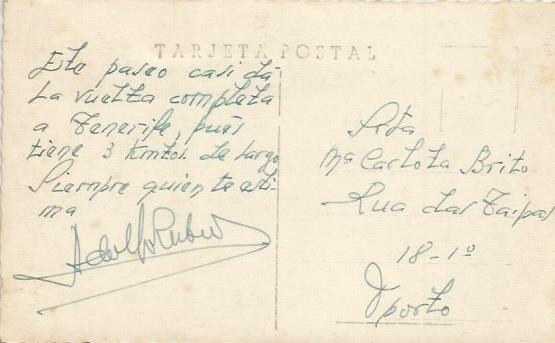 TARJETA POSTAL
Este paseo casi da
la vuelta completa
a Tenerife, pues
tiene 3 kmtos. de largo
Siempre quien te esti-
ma
Srta
Mª Carlota Brito
Rua das Taipas
18-1º
Oporto